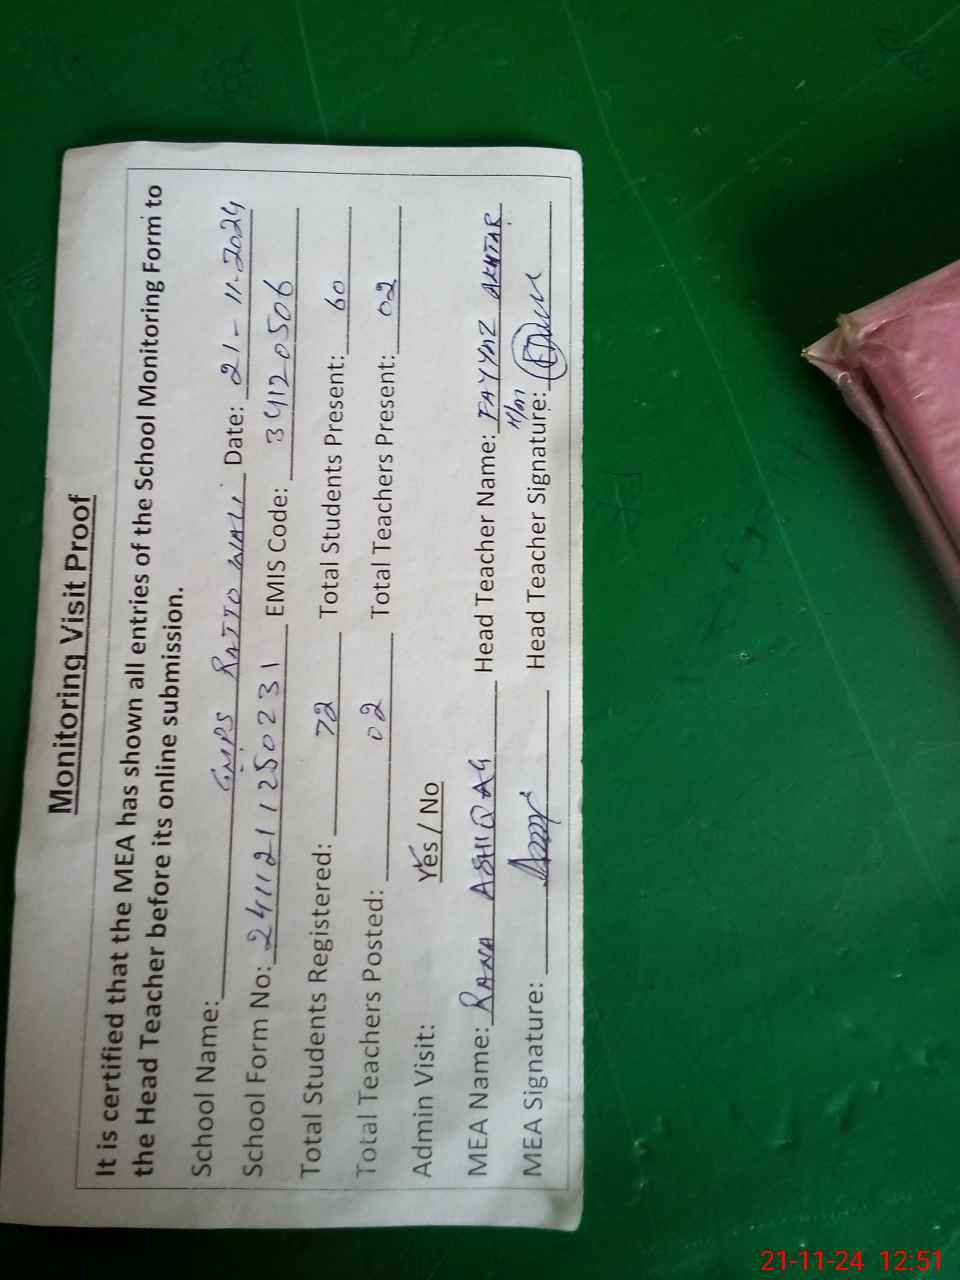 Monitoring Visit Proof
It is certified that the MEA has shown all entries of the School Monitoring Form to
the Head Teacher before its online submission.
School Name: GMPS RATTO WALI Date: 21-11-2024
School Form No: 2411211250231 EMIS Code: 34120506
Total Students Registered: 72 Total Students Present: 60
Total Teachers Posted: 02 Total Teachers Present: 02
Admin Visit: Yes / No
MEA Name: RANA ASHIQ Head Teacher Name: FAYYAZ AKHTAR
MEA Signature: Head Teacher Signature:
21-11-24 12:51